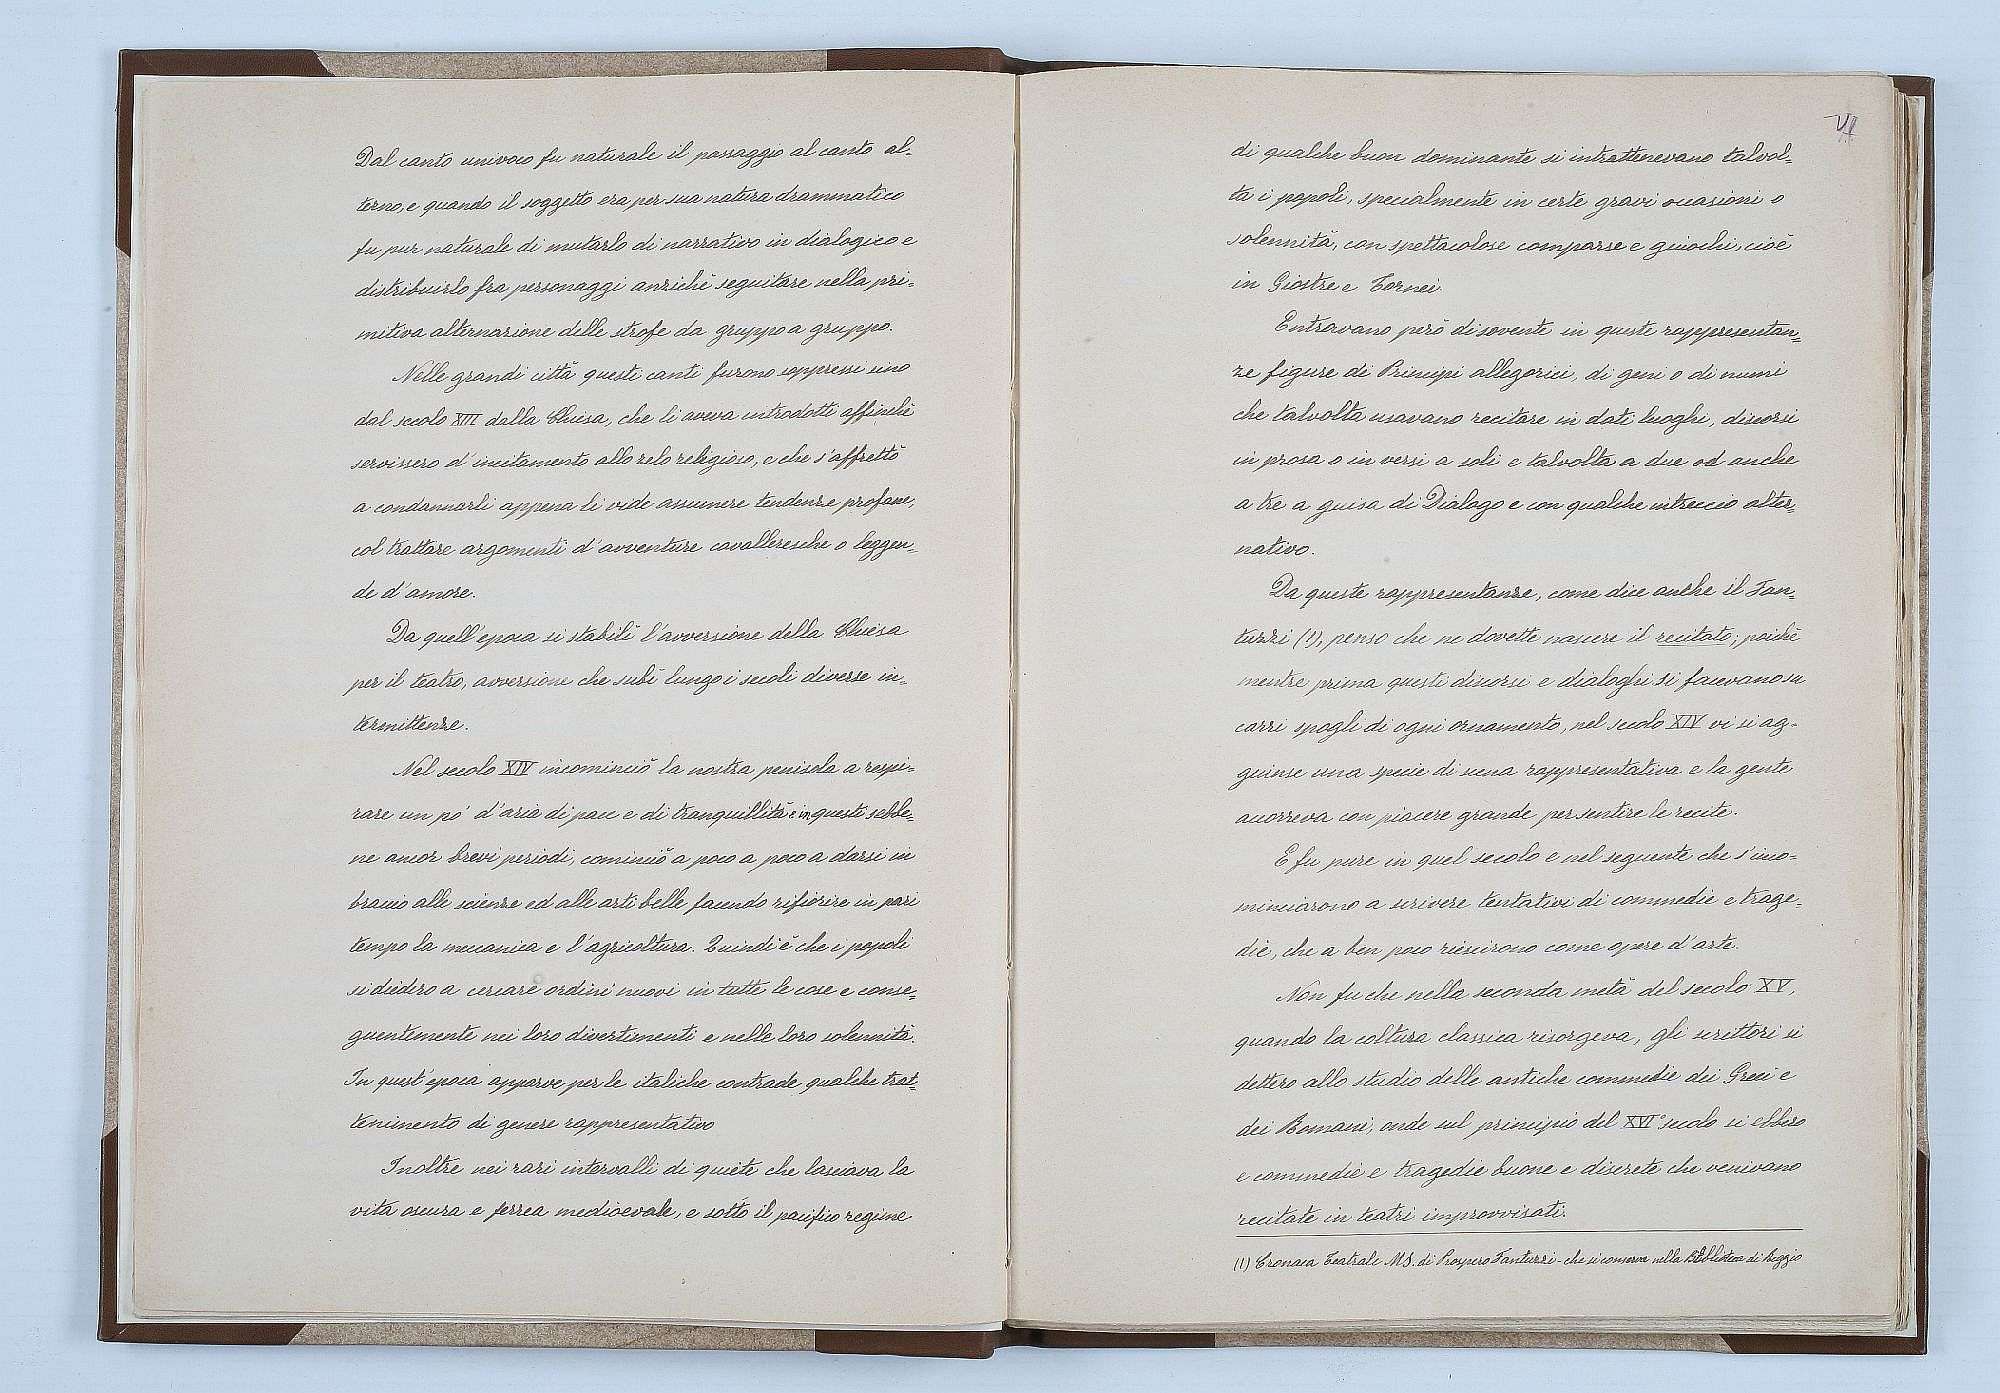 Dal canto univoco fu naturale il passaggio al canto al-
terno, e quando il soggetto era per sua natura drammatico
fu pur naturale di mutarlo di narrativo in dialogico e
distribuirlo fra personaggi anzichè seguitare nella pri-
mitiva alternazione delle strofe da gruppo a gruppo.
Nelle grandi città questi canti furono soppressi sino
dal secolo XIII dalla Chiesa, che li aveva introdotti affinchè
servissero d'incitamento allo zelo religioso, e che s'affrettò
a condannarli appena li vide assumere tendenze profane,
col trattare argomenti d'avventure cavalleresche o leggen-
de d'amore.
Da quell'epoca si stabilì l'avversione della Chiesa
per il teatro, avversione che subì lungo i secoli diverse in-
termittenze.
Nel secolo XIV incominciò la nostra penisola a respi-
rare un po' d'aria di pace e di tranquillità e in questi sebbe-
ne ancor brevi periodi, cominciò a poco a poco a darsi in
braccio alle scienze ed alle arti belle facendo rifiorire in pari
tempo la meccanica e l'agricoltura. Quindi è che i popoli
si diedero a cercare ordini nuovi in tutte le cose e conse-
guentemente nei loro divertimenti e nelle loro solennità.
In quest'epoca apparve per le italiche contrade qualche trat-
tenimento di genere rappresentativo
Inoltre nei rari intervalli di quiete che lasciava la
vita oscura e ferrea medioevale, e sotto il pacifico regime
VI
di qualche buon dominante si intrattenevano talvol-
ta i popoli, specialmente in certe gravi occasioni o
solennità, con spettacolose comparse e giuochi, cioè
in Giostre e Tornei.
Entravano però di sovente in queste rappresentan-
ze figure di Principi allegorici, di geni o di numi
che talvolta usavano recitare in dati luoghi, discorsi
in prosa o in versi a soli e talvolta a due od anche
a tre a guisa di Dialogo e con qualche intreccio alter-
nativo.
Da queste rappresentanze, come dice anche il Fan-
tuzzi (1), penso che ne dovette nascere il recitato; poichè
mentre prima questi discorsi e dialoghi si facevano su
carri spogli di ogni ornamento, nel secolo XIV vi si ag-
giunse una specie di scena rappresentativa e la gente
accorreva con piacere grande per sentire le recite.
E fu pure in quel secolo e nel seguente che s'inco-
minciarono a scrivere tentativi di commedie e trage-
die, che a ben poco riescirono come opere d'arte.
Non fu che nella seconda metà del secolo XV,
quando la coltura classica risorgeva, gli scrittori si
dettero allo studio delle antiche commedie dei Greci e
dei Romani; onde sul principio del XVI° secolo si ebbero
e commedie e tragedie buone e discrete che venivano
recitate in teatri improvvisati.
(1) Cronaca Teatrale MS. di Prospero Fantuzzi - che si conserva nella Biblioteca di Reggio